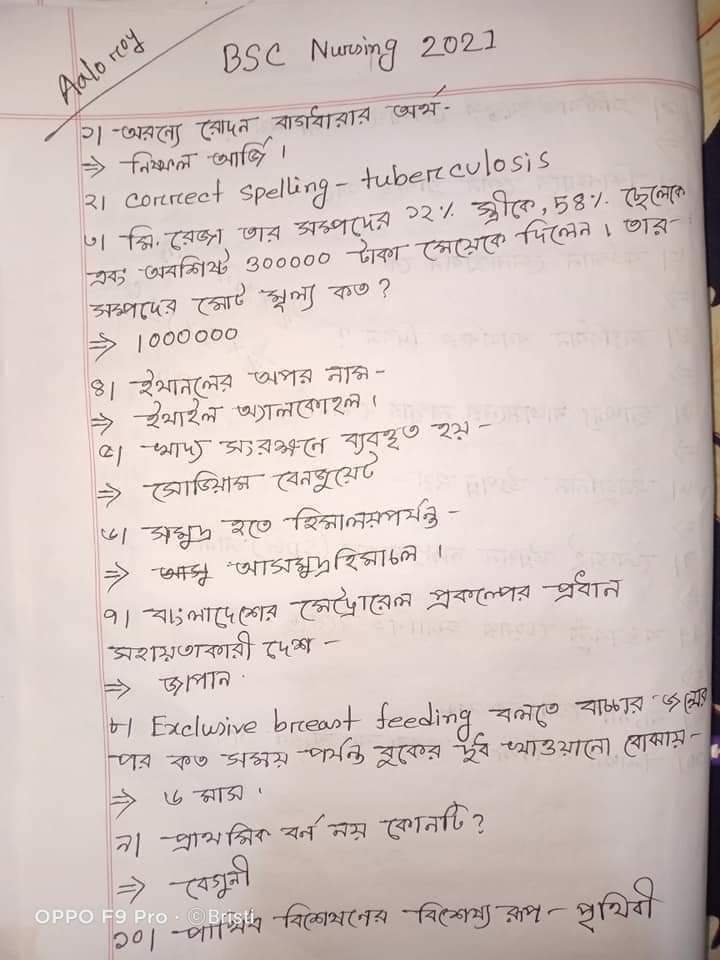 Aalo roy
BSC Nursing 2021
১। অরণ্যে রোদন বাগধারার অর্থ-
⇒ নিষ্ফল আর্জি।
২। correct spelling - tuberculosis
৩। মি. রেজা তার সম্পদের ১২% স্ত্রীকে, 58% ছেলেকে
এবং অবশিষ্ট 300000 টাকা মেয়েকে দিলেন। তার
সম্পদের মোট মূল্য কত?
⇒ 1000000
৪। ইথানলের অপর নাম-
⇒ ইথাইল অ্যালকোহল।
৫। খাদ্য সংরক্ষনে ব্যবহৃত হয় -
⇒ সোডিয়াম বেনজুয়েট
৬। সমুদ্র হতে হিমালয়পর্যন্ত -
⇒ আসমুদ্রহিমাচল।
৭। বাংলাদেশের মেট্রোরেল প্রকল্পের প্রধান
সহায়তাকারী দেশ -
⇒ জাপান.
৮। Exclusive breast feeding বলতে বাচ্চার জন্মের
পর কত সময় পর্যন্ত বুকের দুধ খাওয়ানো বোঝায় -
⇒ ৬ মাস।
৯। প্রাথমিক বর্ন নয় কোনটি?
⇒ বেগুনী
১০। পার্থিব বিশেষনের বিশেষ্য রূপ - পৃথিবী
OPPO F9 Pro · ©Bristi